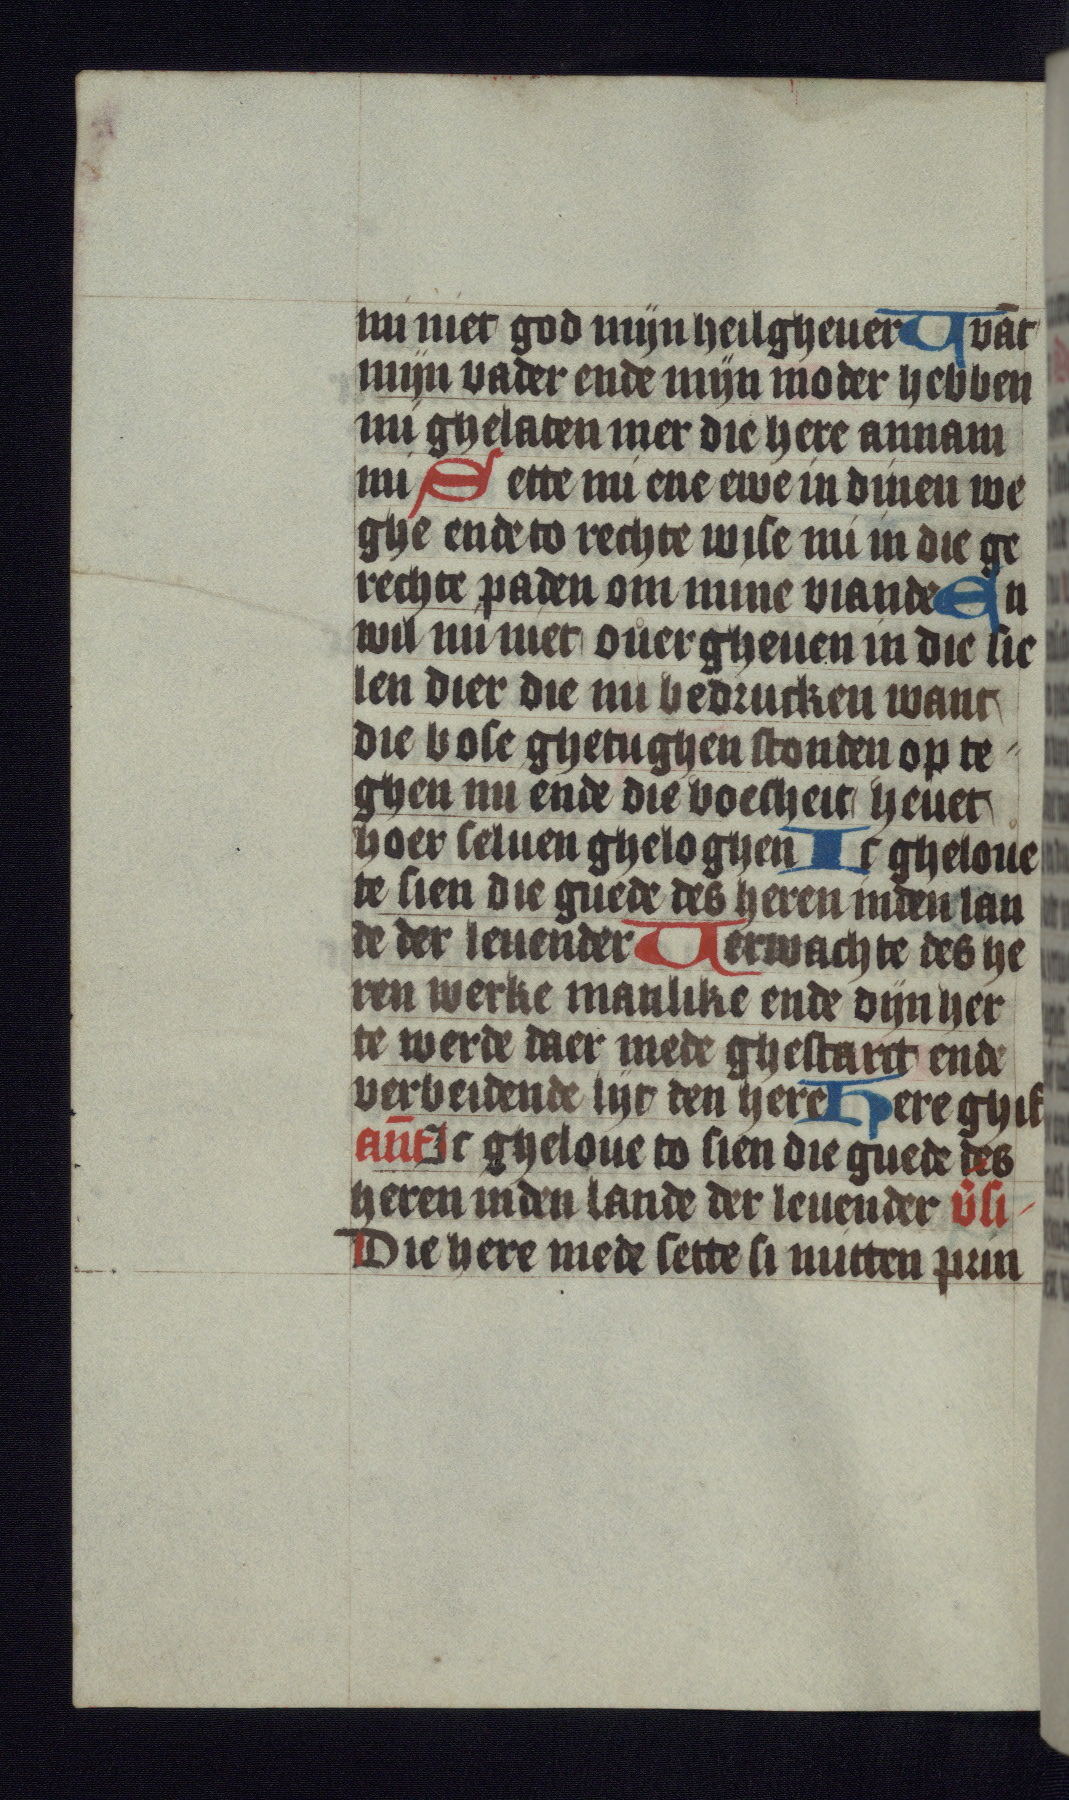 mi niet god mijn heilgheuer Vvāt
mijn vader ende mijn moder hebben
mi ghelaten mer die here annam
mi Sette mi ene ewe in dinen we
ghe ende to rechte wise mi in die ge
rechte paden om mine viande En
wil mi niet ouergheuen in die sie
len dier die mi bedrucken want
die bose ghetughen stonden op te
ghen mi ende die boesheit heuet
hoer seluen gheloghen Ic gheloue
te sien die guede des heren inden lan
de der leuender Verwachte des he
ren werke manlike ende dijn her
te werde daer mede ghestarct ende
verbeidende sijt den here Here ghif
an̄t Ic gheloue to sien die guede des
heren inden lande der leuender v̄si
Die here mede sette si mitten prin